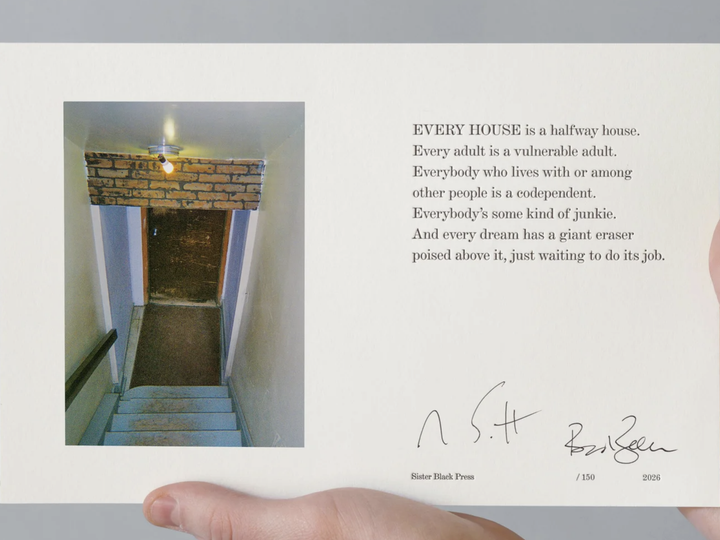 EVERY HOUSE is a halfway house.
Every adult is a vulnerable adult.
Everybody who lives with or among
other people is a codependent.
Everybody's some kind of junkie.
And every dream has a giant eraser
poised above it, just waiting to do its job.
Sister Black Press / 150 2026